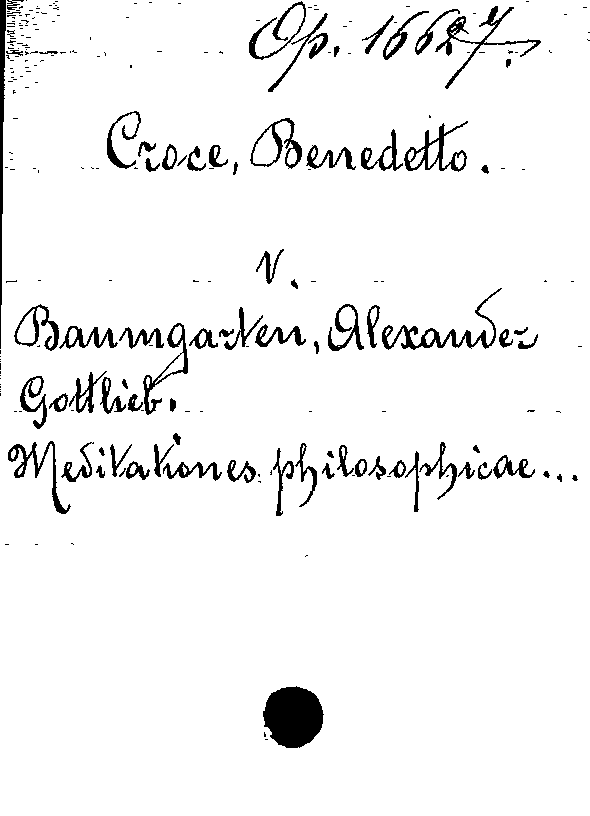 Op. 16627.
Croce, Benedetto.
V.
Baumgarten, Alexander
Gottlieb.
Meditationes philosophicae...